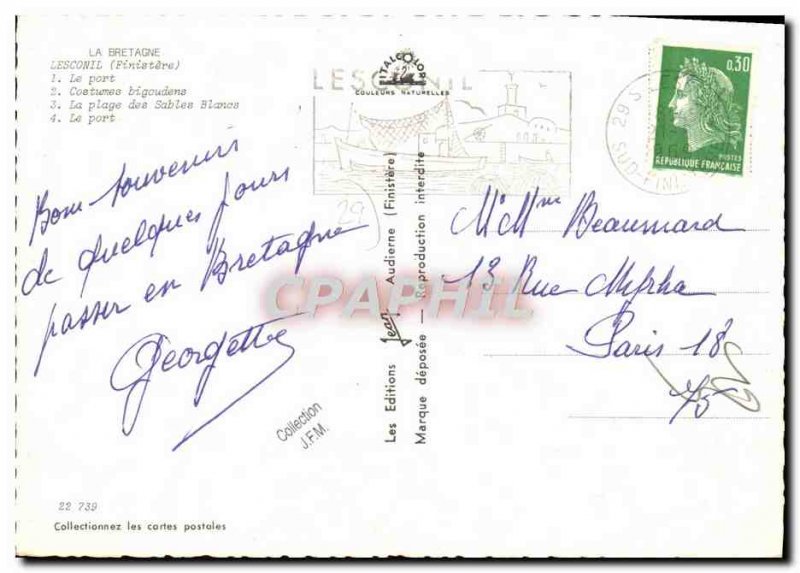 LA BRETAGNE
LESCONIL (Finistère)
1. Le port
2. Costumes bigoudens
3. La plage des Sables Blancs
4. Le port
Bons souvenirs
de quelques jours
passer en Bretagne
Georgette
Collection
J.F.M.
22 739
Collectionnez les cartes postales
ITALCOLOR
COULEURS NATURELLES
LESCONIL
29
Les Editions Jean Audierne (Finistère)
Marque déposée — Reproduction interdite
CPAPHIL
0,30
POSTES
REPUBLIQUE FRANÇAISE
29 S
SUD-FINI
M. Mme Beaumard
13 Rue Myrha
Paris 18
75